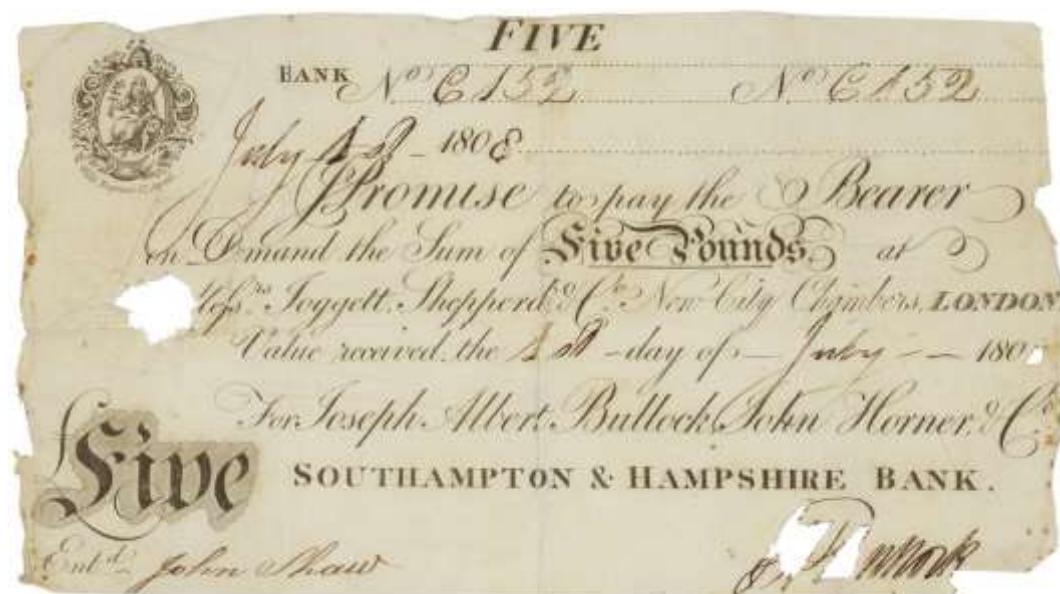 FIVE
BANK No C152 No C152
July 1st 1808
I Promise to pay the Bearer
on Demand the Sum of Five Pounds at
Mess.rs Joggett, Shepperd & Co. New City Chambers, LONDON
Value received the 1st day of July 180
For Joseph Albert Bullock, John Horner, & Co.
Five SOUTHAMPTON & HAMPSHIRE BANK.
Ent.d John Shaw